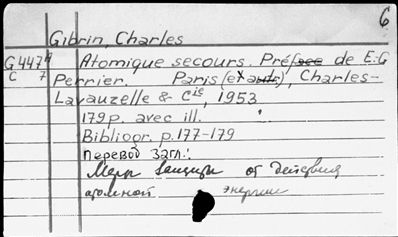 6
Gibrin, Charles
G447 4 Atomique secours. Préface de E.G
C 7 Perrier. Paris (et autr), Charles-
Lavauzelle & Cie, 1953
179 p. avec ill.
Bibliogr. p. 177-179
Перевод загл.:
Меры защиты от действия
атомной энергии